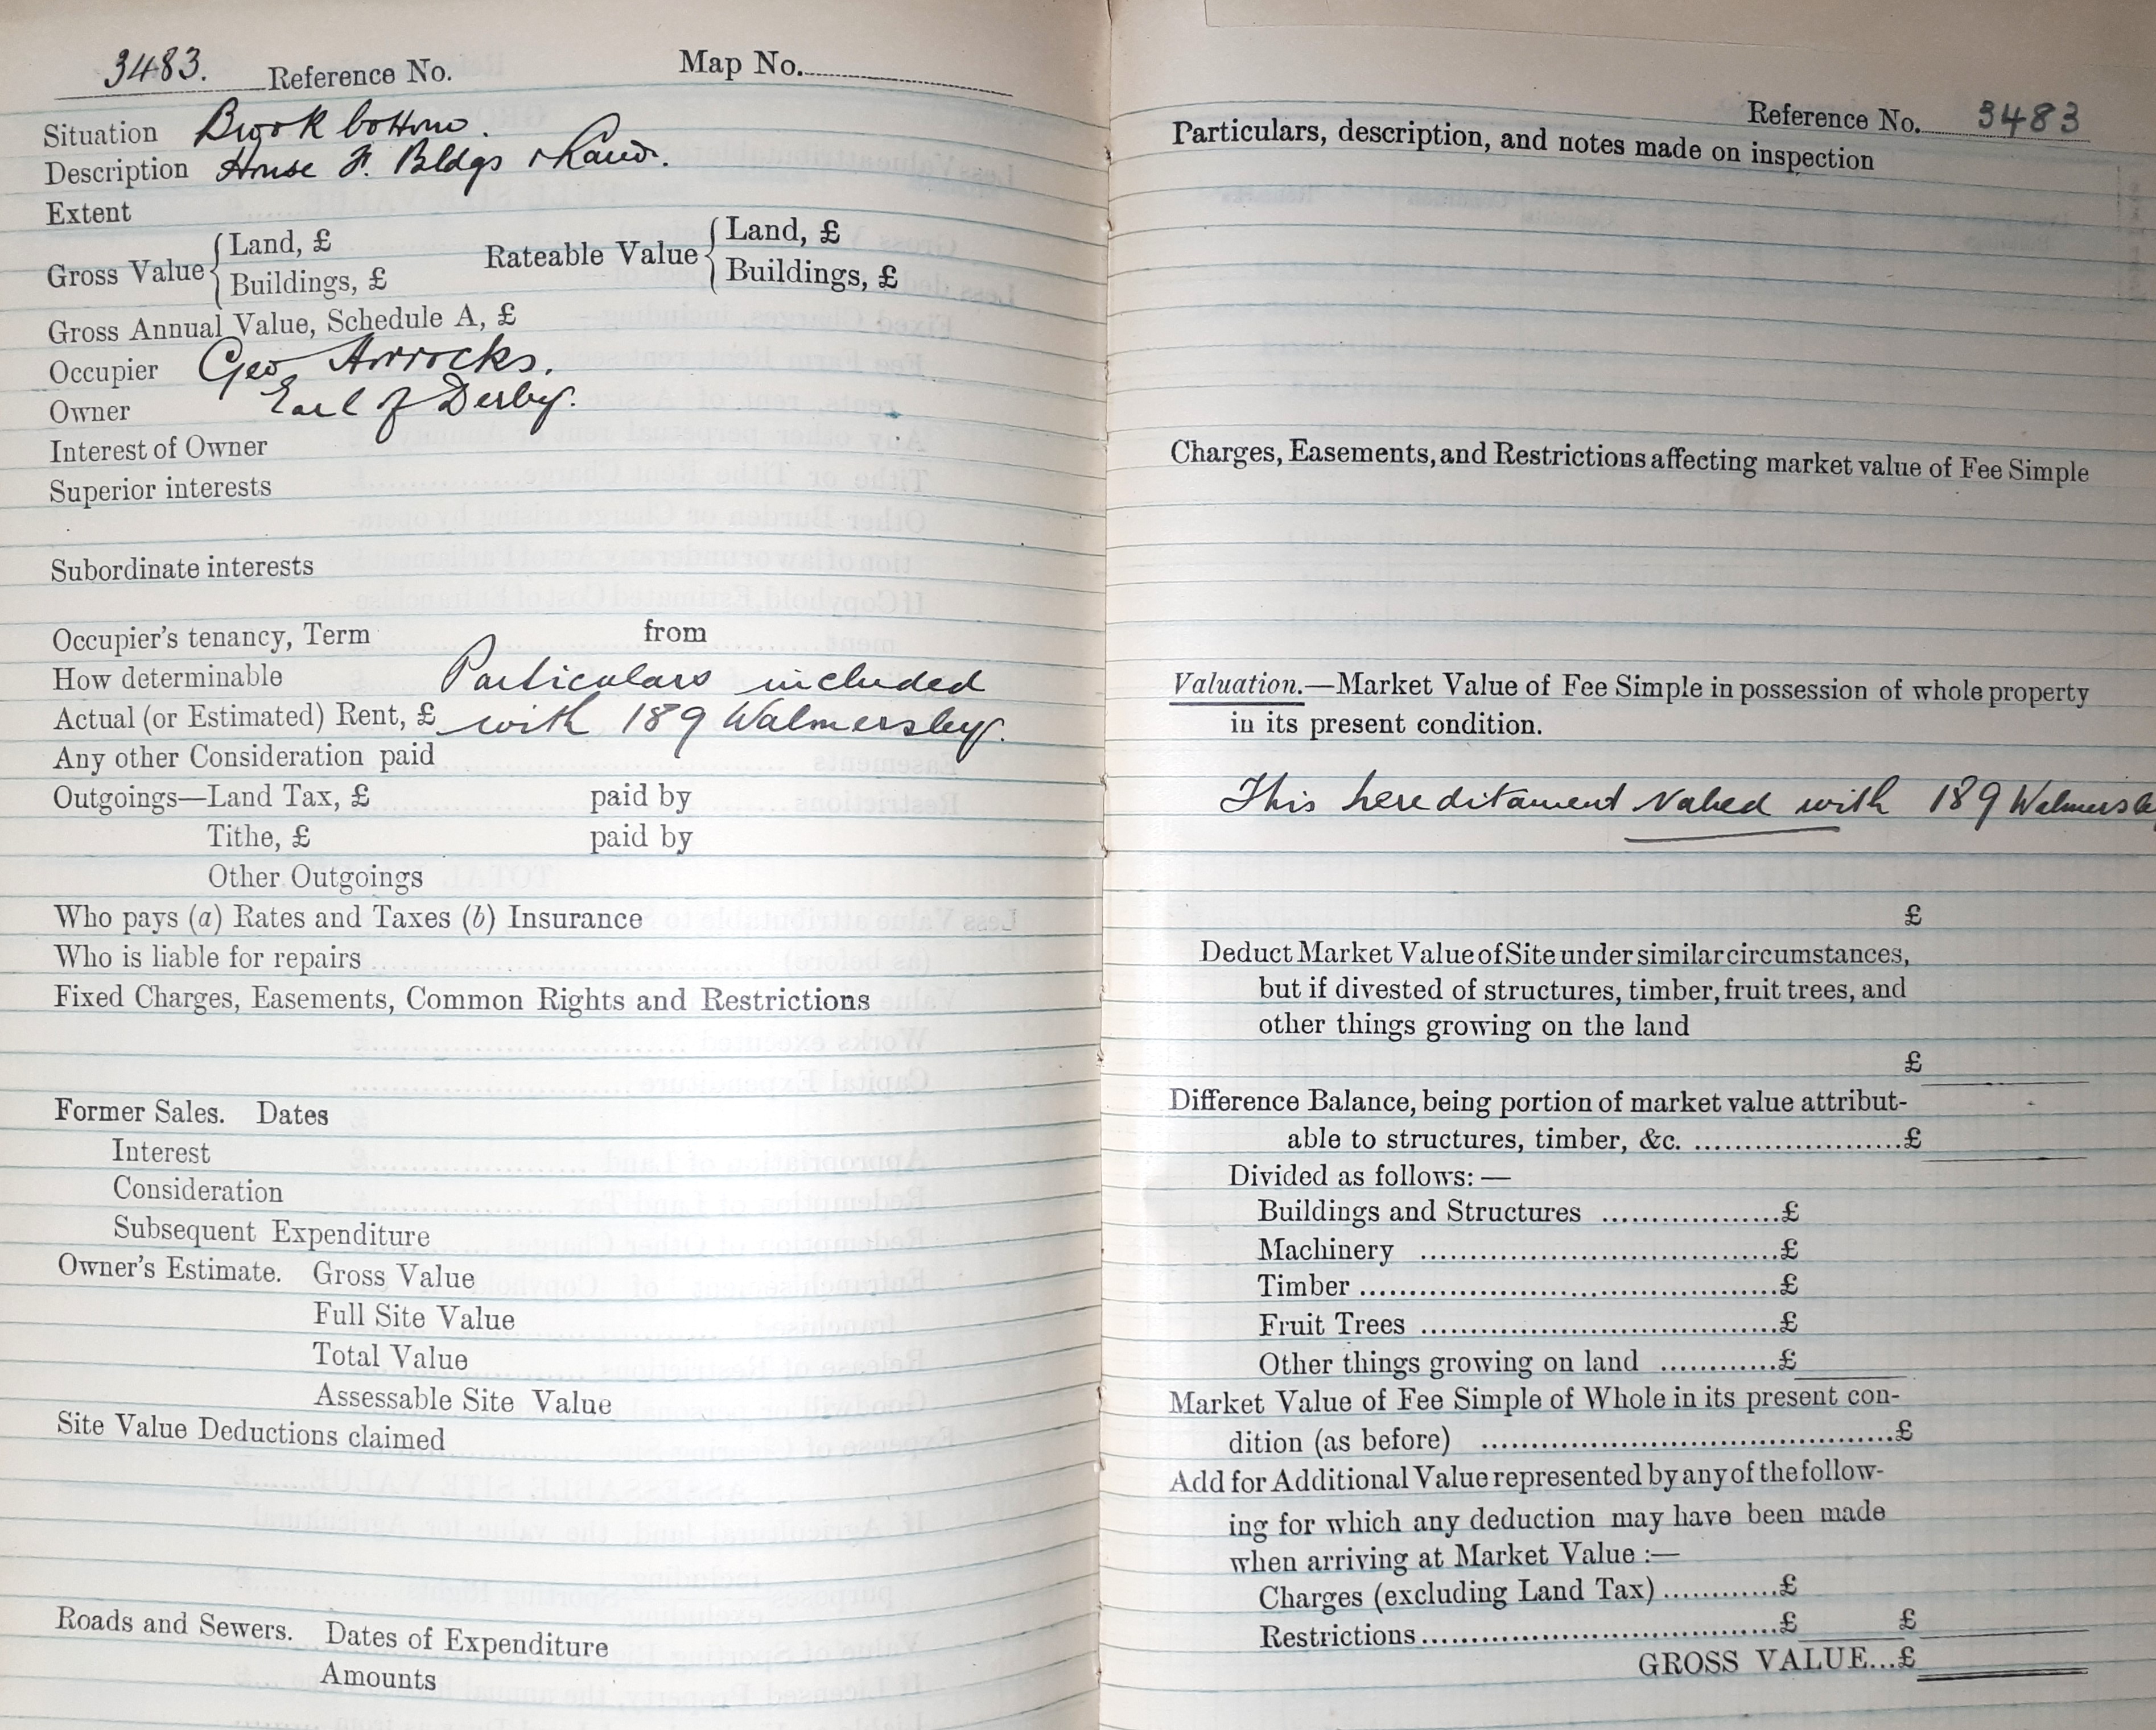 3483. Reference No. Map No.
Situation Brook bottom.
Description House F. Bldgs & Land.
Extent
Gross Value { Land, £ Rateable Value { Land, £
Buildings, £ Buildings, £
Gross Annual Value, Schedule A, £
Occupier Geo Arrocks.
Owner Earl of Derby.
Interest of Owner
Superior interests
Subordinate interests
Occupier's tenancy, Term from
How determinable Particulars included
Actual (or Estimated) Rent, £ with 189 Walmersley.
Any other Consideration paid
Outgoings—Land Tax, £ paid by
Tithe, £ paid by
Other Outgoings
Who pays (a) Rates and Taxes (b) Insurance
Who is liable for repairs
Fixed Charges, Easements, Common Rights and Restrictions
Former Sales. Dates
Interest
Consideration
Subsequent Expenditure
Owner's Estimate. Gross Value
Full Site Value
Total Value
Assessable Site Value
Site Value Deductions claimed
Roads and Sewers. Dates of Expenditure
Amounts
Reference No. 3483
Particulars, description, and notes made on inspection
Charges, Easements, and Restrictions affecting market value of Fee Simple
Valuation.—Market Value of Fee Simple in possession of whole property
in its present condition.
This hereditament valued with 189 Walmersle
£
Deduct Market Value of Site under similar circumstances,
but if divested of structures, timber, fruit trees, and
other things growing on the land
£
Difference Balance, being portion of market value attribut-
able to structures, timber, &c. ....................£
Divided as follows:—
Buildings and Structures ..................£
Machinery ....................................£
Timber ..........................................£
Fruit Trees ....................................£
Other things growing on land ............£
Market Value of Fee Simple of Whole in its present con-
dition (as before) ..........................................£
Add for Additional Value represented by any of the follow-
ing for which any deduction may have been made
when arriving at Market Value :—
Charges (excluding Land Tax) ............£
Restrictions ......................................£ £
GROSS VALUE...£